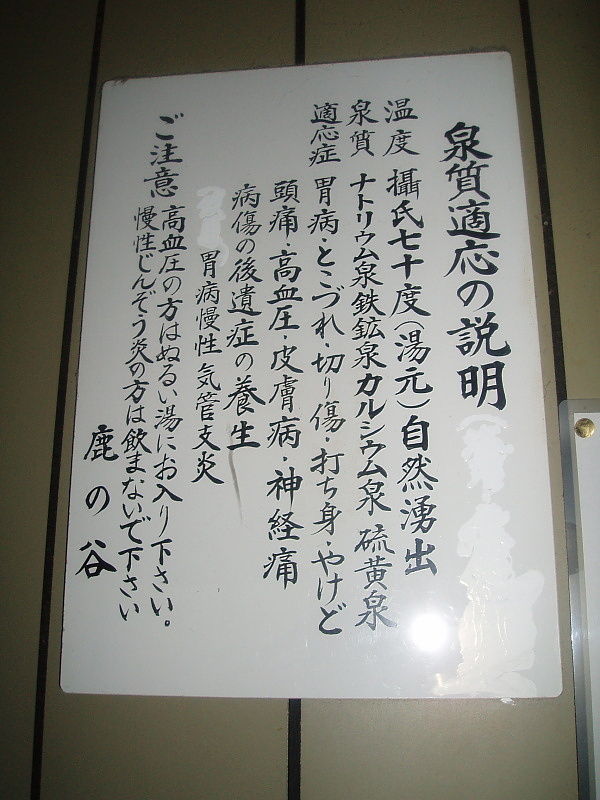 泉質適応の説明
温度 攝氏七十度(湯元)自然湧出
泉質 ナトリウム泉鉄鉱泉カルシウム泉 硫黄泉
適応症 胃病・とこづれ・切り傷・打ち身・やけど
頭痛・高血圧・皮膚病・神経痛
病傷の後遺症の養生
胃病慢性 気管支炎
ご注意 高血圧の方はぬるい湯にお入り下さい。
慢性じんぞう炎の方は飲まないで下さい
鹿の谷